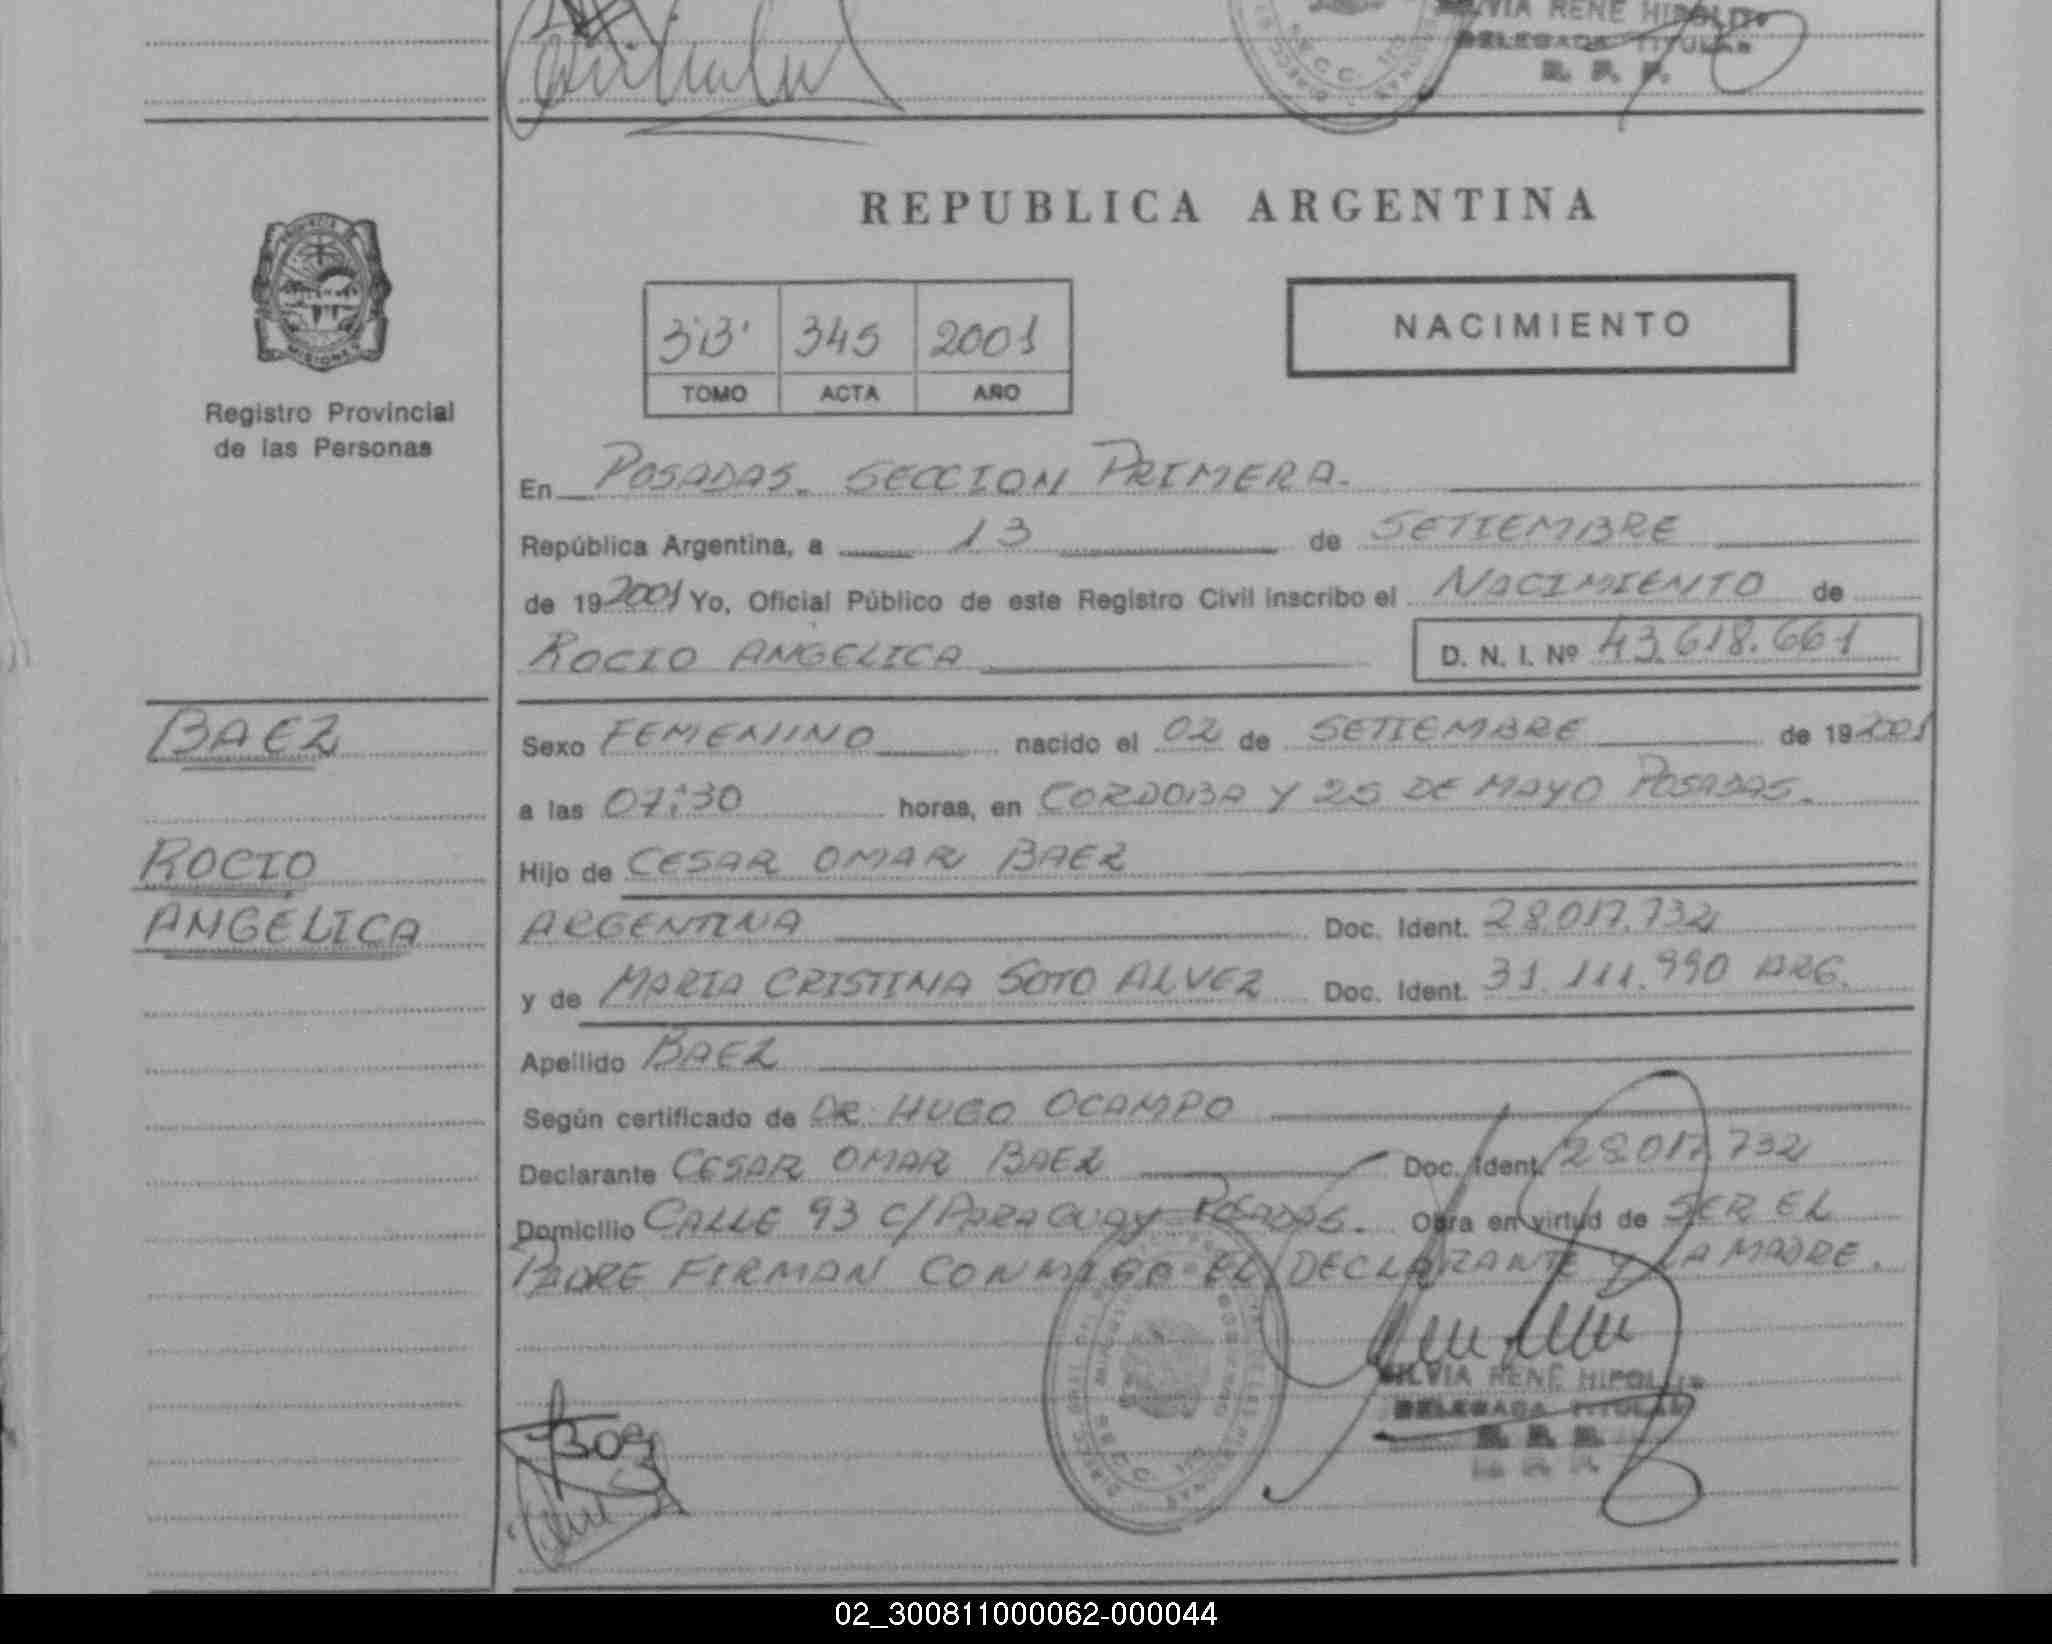 SILVIA RENÉ HIPOLITO
DELEGADA TITULAR
R. P. P.
REPUBLICA ARGENTINA
PROVINCIA
MISIONES
3'B' 345 2001
TOMO ACTA AÑO
NACIMIENTO
Registro Provincial
de las Personas
En POSADAS. SECCION PRIMERA.
República Argentina, a 13 de SETIEMBRE
de 192001 Yo, Oficial Público de este Registro Civil inscribo el NACIMIENTO de
ROCIO ANGELICA D. N. I. Nº 43.618.661
BAEZ
Sexo FEMENINO nacido el 02 de SETIEMBRE de 192001
a las 07:30 horas, en CORDOBA Y 25 DE MAYO POSADAS.
ROCIO
Hijo de CESAR OMAR BAEZ
ANGELICA
ARGENTINA Doc. Ident. 28.017.732
y de MARIA CRISTINA SOTO ALVEZ Doc. Ident. 31.111.990 ARG.
Apellido BAEZ
Según certificado de DR. HUGO OCAMPO
Declarante CESAR OMAR BAEZ Doc. Ident. 28.017.732
Domicilio CALLE 93 C/ PARAGUAY POSADAS. Obra en virtud de SER EL
PADRE FIRMAN CONMIGO EL DECLARANTE Y LA MADRE.
SILVIA RENÉ HIPOLITO
DELEGADA TITULAR
R. P. P.
02_300811000062-000044